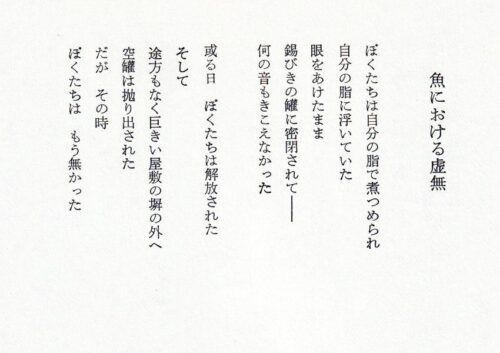 魚における虚無
ぼくたちは自分の脂で煮つめられ
自分の脂に浮いていた
眼をあけたまま
錫びきの罐に密閉されて――
何の音もきこえなかった
或る日　ぼくたちは解放された
そして
途方もなく巨きい屋敷の塀の外へ
空罐は抛り出された
だが　その時
ぼくたちは　もう無かった